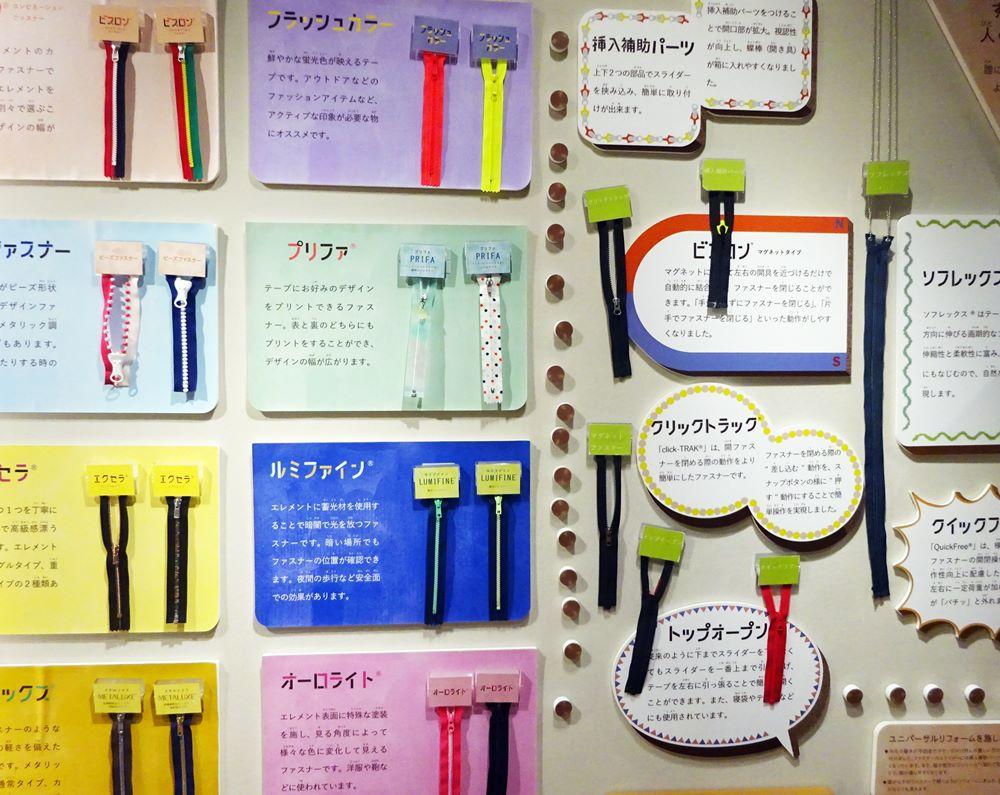 コンビネーション
ビスロン
ビスロン
エレメントのカ
ファスナーで
エレメントを
別々で選ぶこ
ザインの幅が
フラッシュカラー
フラッシュ
カラー
フラッシュ
カラー
鮮やかな蛍光色が映えるテー
プです。アウトドアなどの
ファッションアイテムなど、
アクティブな印象が必要な物
にオススメです。
挿入補助パーツ
上下2つの部品でスライダー
を挟み込み、簡単に取り付
けが出来ます。
挿入補助パーツをつけるこ
とで開口部が拡大。視認性
が向上し、蝶棒（開き具）
が箱に入れやすくなりまし
た。
ァスナー
ビーズファスナー
ビーズファスナー
がビーズ形状
デザインファ
メタリック調
もあります。
たりする時の
プリファ®
プリファ
PRIFA
プリファ
PRIFA
テープにお好みのデザイン
をプリントできるファス
ナー。表と裏のどちらにも
プリントをすることができ、
デザインの幅が広がります。
クリックトラック
挿入補助パーツ
ソフレックス
ビスロン® マグネットタイプ
N
S
マグネットに
て左右の開具を近づけるだけで
自動的に結合
ファスナーを閉じることがで
きます。「手
ずにファスナーを閉じる」、「片
手でファスナーを閉じる」といった動作がしやす
くなりました。
ソフレックス
ソフレックス®はテー
方向に伸びる画期的な
伸縮性と柔軟性に富み
にもなじむので、自然な
現します。
セラ®
エクセラ®
エクセラ®
つ1つを丁寧に
で高級感漂う
す。エレメント
グルタイプ、重
イプの2種類あ
ルミファイン®
ルミファイン
LUMIFINE
ルミファイン
LUMIFINE
エレメントに蓄光材を使用す
ることで暗闇で光を放つファ
スナーです。暗い場所でも
ファスナーの位置が確認でき
ます。夜間の歩行など安全面
での効果があります。
マグネット
ファスナー
クリックトラック®
「click-TRAK®」は、開ファス
ナーを閉める際の動作をより
簡単にしたファスナーです。
ファスナーを閉める際の
“差し込む”動作を、ス
ナップボタンの様に“押
す”動作にすることで簡
単操作を実現しました。
クイックフ
「QuickFree®」は、様
ファスナーの開閉操
作性向上に配慮した
左右に一定荷重が加
が「パチッ」と外れま
トップオープン
クイックフリー
トップオープン
従来のように下までスライダーを
てもスライダーを一番上まで引
げ、
テープを左右に引っ張ることで簡
開く
ことができます。また、寝袋やテ
など
にも使用されています。
ックス
メタルックス
METALUXE
メタルックス
METALUXE
スナーのような
の軽さを備えた
です。メタリッ
通常タイプ、カ
オーロライト®
オーロライト
オーロライト
エレメント表面に特殊な塗装
を施し、見る角度によって
様々な色に変化して見える
ファスナーです。洋服や鞄な
どに使われています。
ユニバーサルリフォームを施し